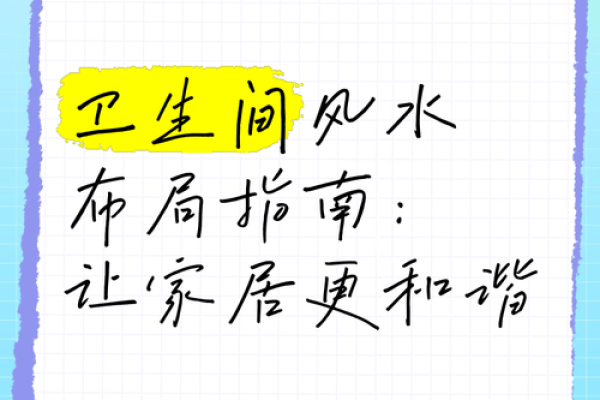 卫生间风水
布局指南：
让家居更和谐